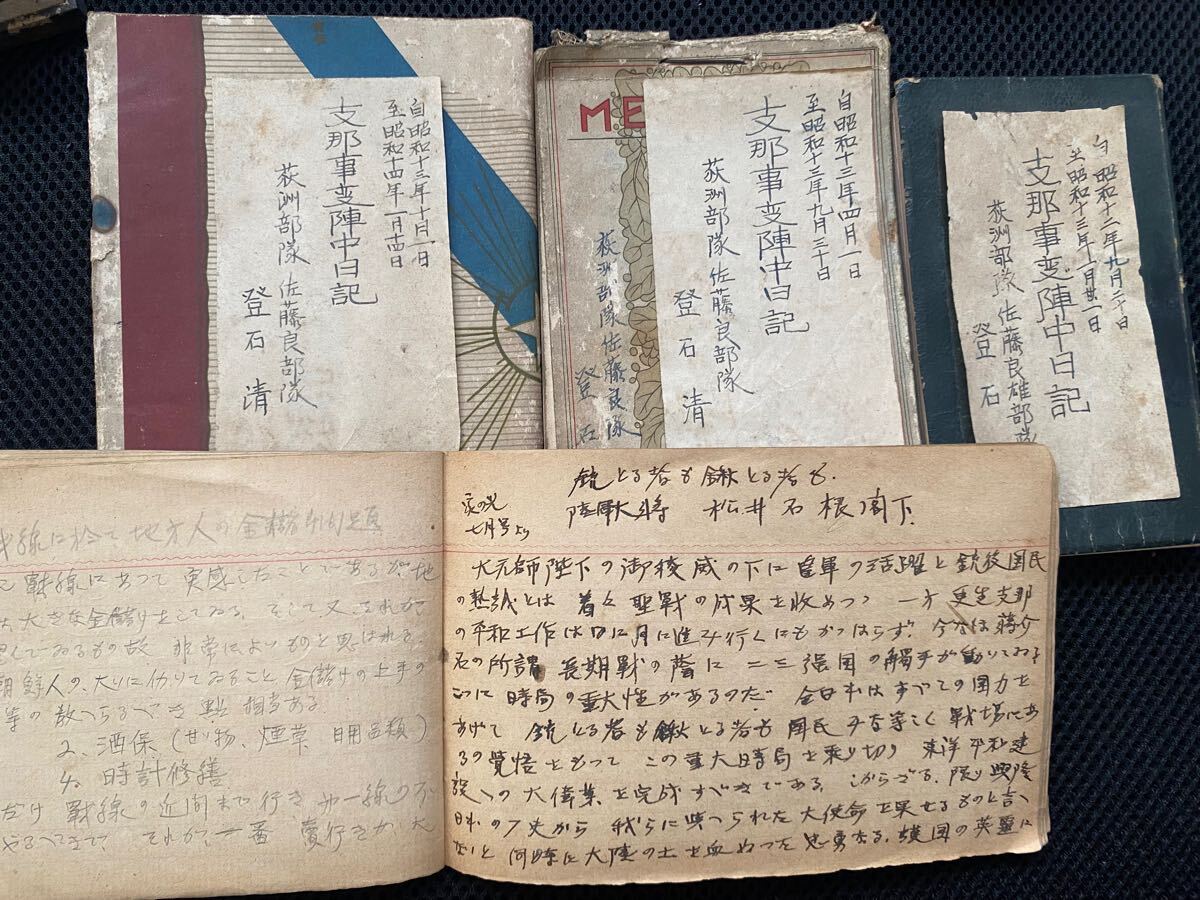 自昭和十三年十月一日
至昭和十四年一月四日
支那事変陣中日記
荻洲部隊佐藤良部隊
登石 清
ME
自昭和十三年四月一日
至昭和十三年九月三十日
支那事変陣中日記
荻洲部隊佐藤良部隊
登石 清
荻洲部隊佐藤良隊
登石
自昭和十二年九月二十日
至昭和十三年 月廿一日
支那事変陣中日記
荻洲部隊佐藤良雄部隊
登石
戦線に於て地方人の金儲
戰線にあつて実感したことであるが、地
大きな金儲けをしてゐる。そして又それが
てゐるもの故、非常によいものと思はれる。
朝鮮人の、大いに働りてゐること金儲けの上手の
等の教へらるべき點相当ある
2、酒保(甘物、煙草 日用品類)
4. 時計修繕
だけ 戰線の近間まで行き 第一線の
それが一番 賣行きが 大
銃とる者も鍬とる者も.
家の光
七月号より
陸軍大将 松井石根閣下
大元帥陛下の御稜威の下に皇軍の活躍と銃後国民
の熱誠とは 着々聖戦の成果を收めつゝ一方 更生支那
の平和工作は日に月に進み行くにもかゝはらず、今なほ蒋介
石の所謂長期戦の蔭に 二三強国の觸手が動いてゐる
こゝに時局の重大性があるのだ 全日本はすべての国力を
あげて 銃とる者も鍬とる者も 国民みな等しく戦場にあ
るの覚悟をもつて この重大時局を乗り切り 東洋平和建
設への大偉業を完成すべきである。
日本の 我らに与へられた大使命を果せるものと言へ
ないと 何時に大陸の土を血ぬつた忠勇なる、護国の英霊に